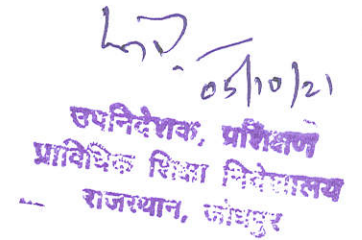 05/10/21
उपनिदेशक, प्रशिक्षण
प्राविधिक शिक्षा निदेशालय
राजस्थान, जोधपुर